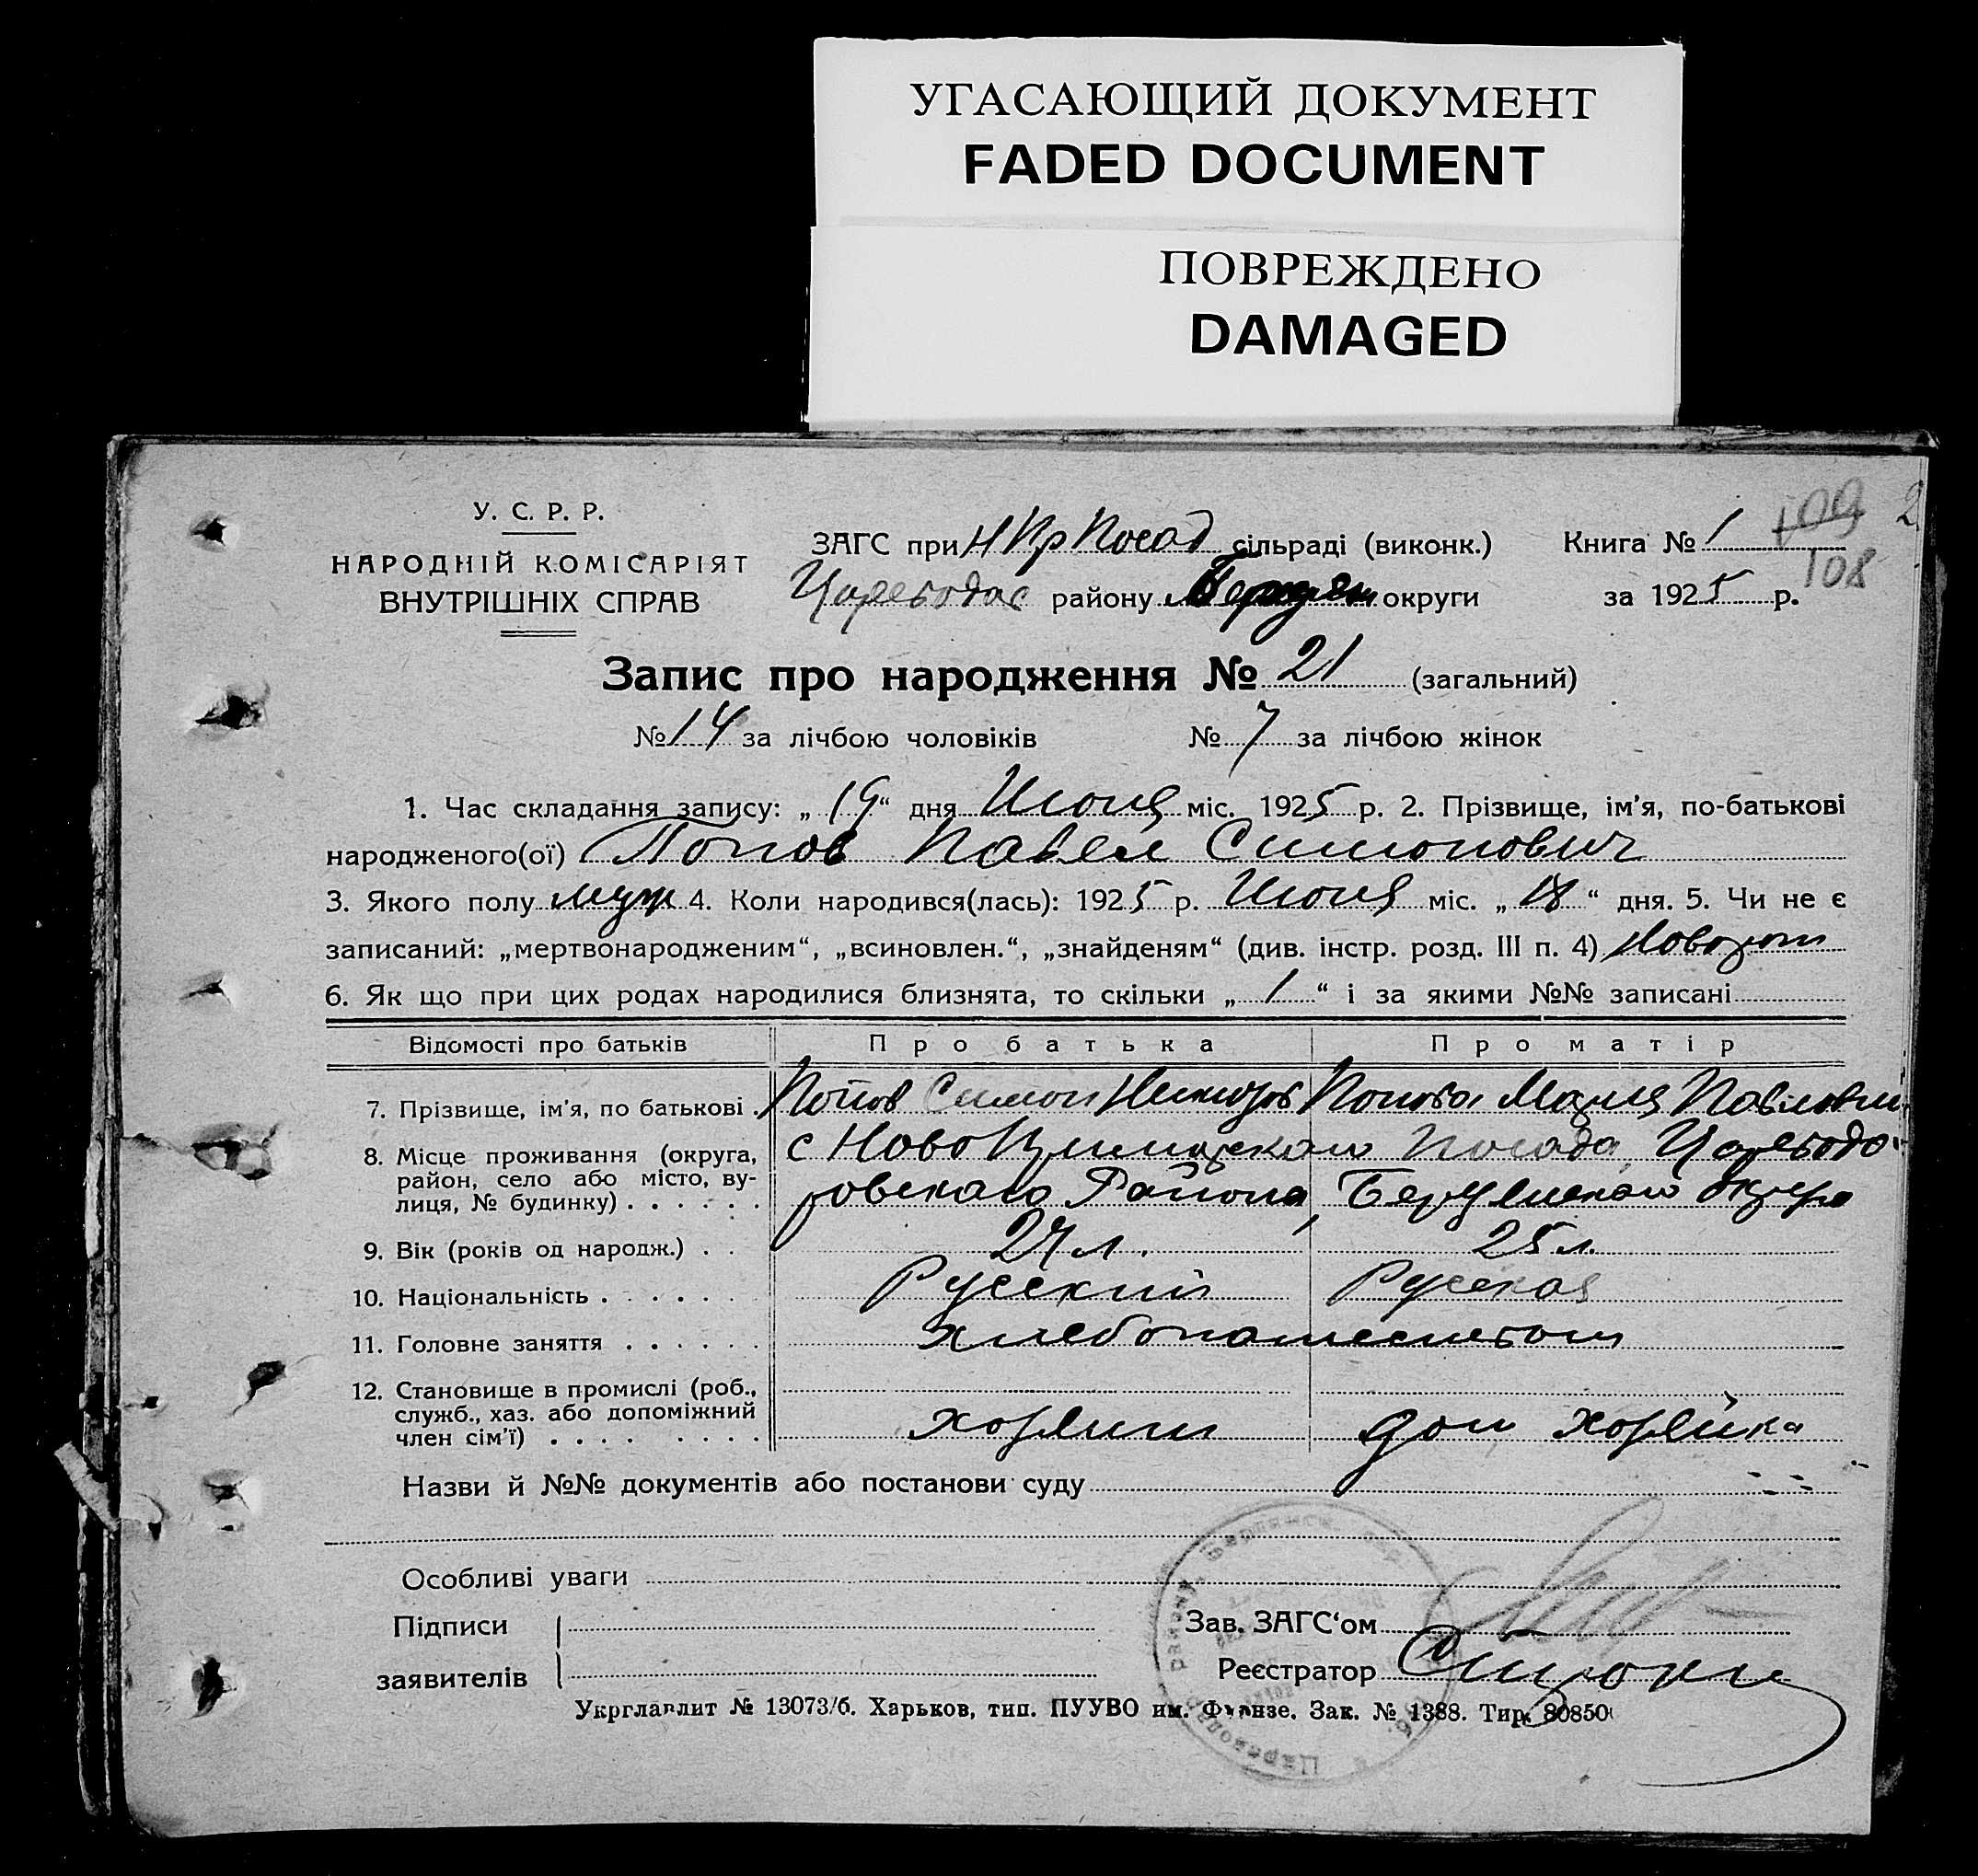 УГАСАЮЩИЙ ДОКУМЕНТ
FADED DOCUMENT
ПОВРЕЖДЕНО
DAMAGED
2
109
108
У. С. Р. Р.
НАРОДНІЙ КОМІСАРІЯТ
ВНУТРІШНІХ СПРАВ
ЗАГС при Н Пр Посад сільраді (виконк.) Книга № 1
району округи за 1925 р.
Запис про народження № 21 (загальний)
№ 14 за лічбою чоловіків № 7 за лічбою жінок
1. Час складання запису: „ 19 “ дня Июня міс. 1925 р. 2. Прізвище, ім'я, по-батькові
народженого(ої) Попов Павел Симонович
3. Якого полу муж 4. Коли народився(лась): 1925 р. Июня міс. „ 18 “ дня. 5. Чи не є
записаний: „мертвонародженим“, „всиновлен.“, „знайденям“ (див. інстр. розд. III п. 4)
6. Як що при цих родах народилися близнята, то скільки „ 1 “ і за якими №№ записані
Відомості про батьків Про батька Про матір
7. Прізвище, ім'я, по батькові . Попов Симон Попова Мария
8. Місце проживання (округа, район, село або місто, вулиця, № будинку) . . . . . . с Ново Посада, Цареводаровскаго Района, Бердянскаго округа
9. Вік (років од народж.) . . 27 л. 25 л.
10. Національність . . . . . . Русский Русская
11. Головне заняття . . . . . . хлебопашеством
12. Становище в промислі (роб., служб., хаз. або допоміжний член сім'ї) . . . . . . . . хозяин дом хозяйка
Назви й №№ документів або постанови суду
Особливі уваги
Підписи
заявителів
Зав. ЗАГС‘ом
Реєстратор
Укрглавлит № 13073/б. Харьков, тип. ПУУВО им. Фрунзе. Зак. № 1388. Тир. 80850